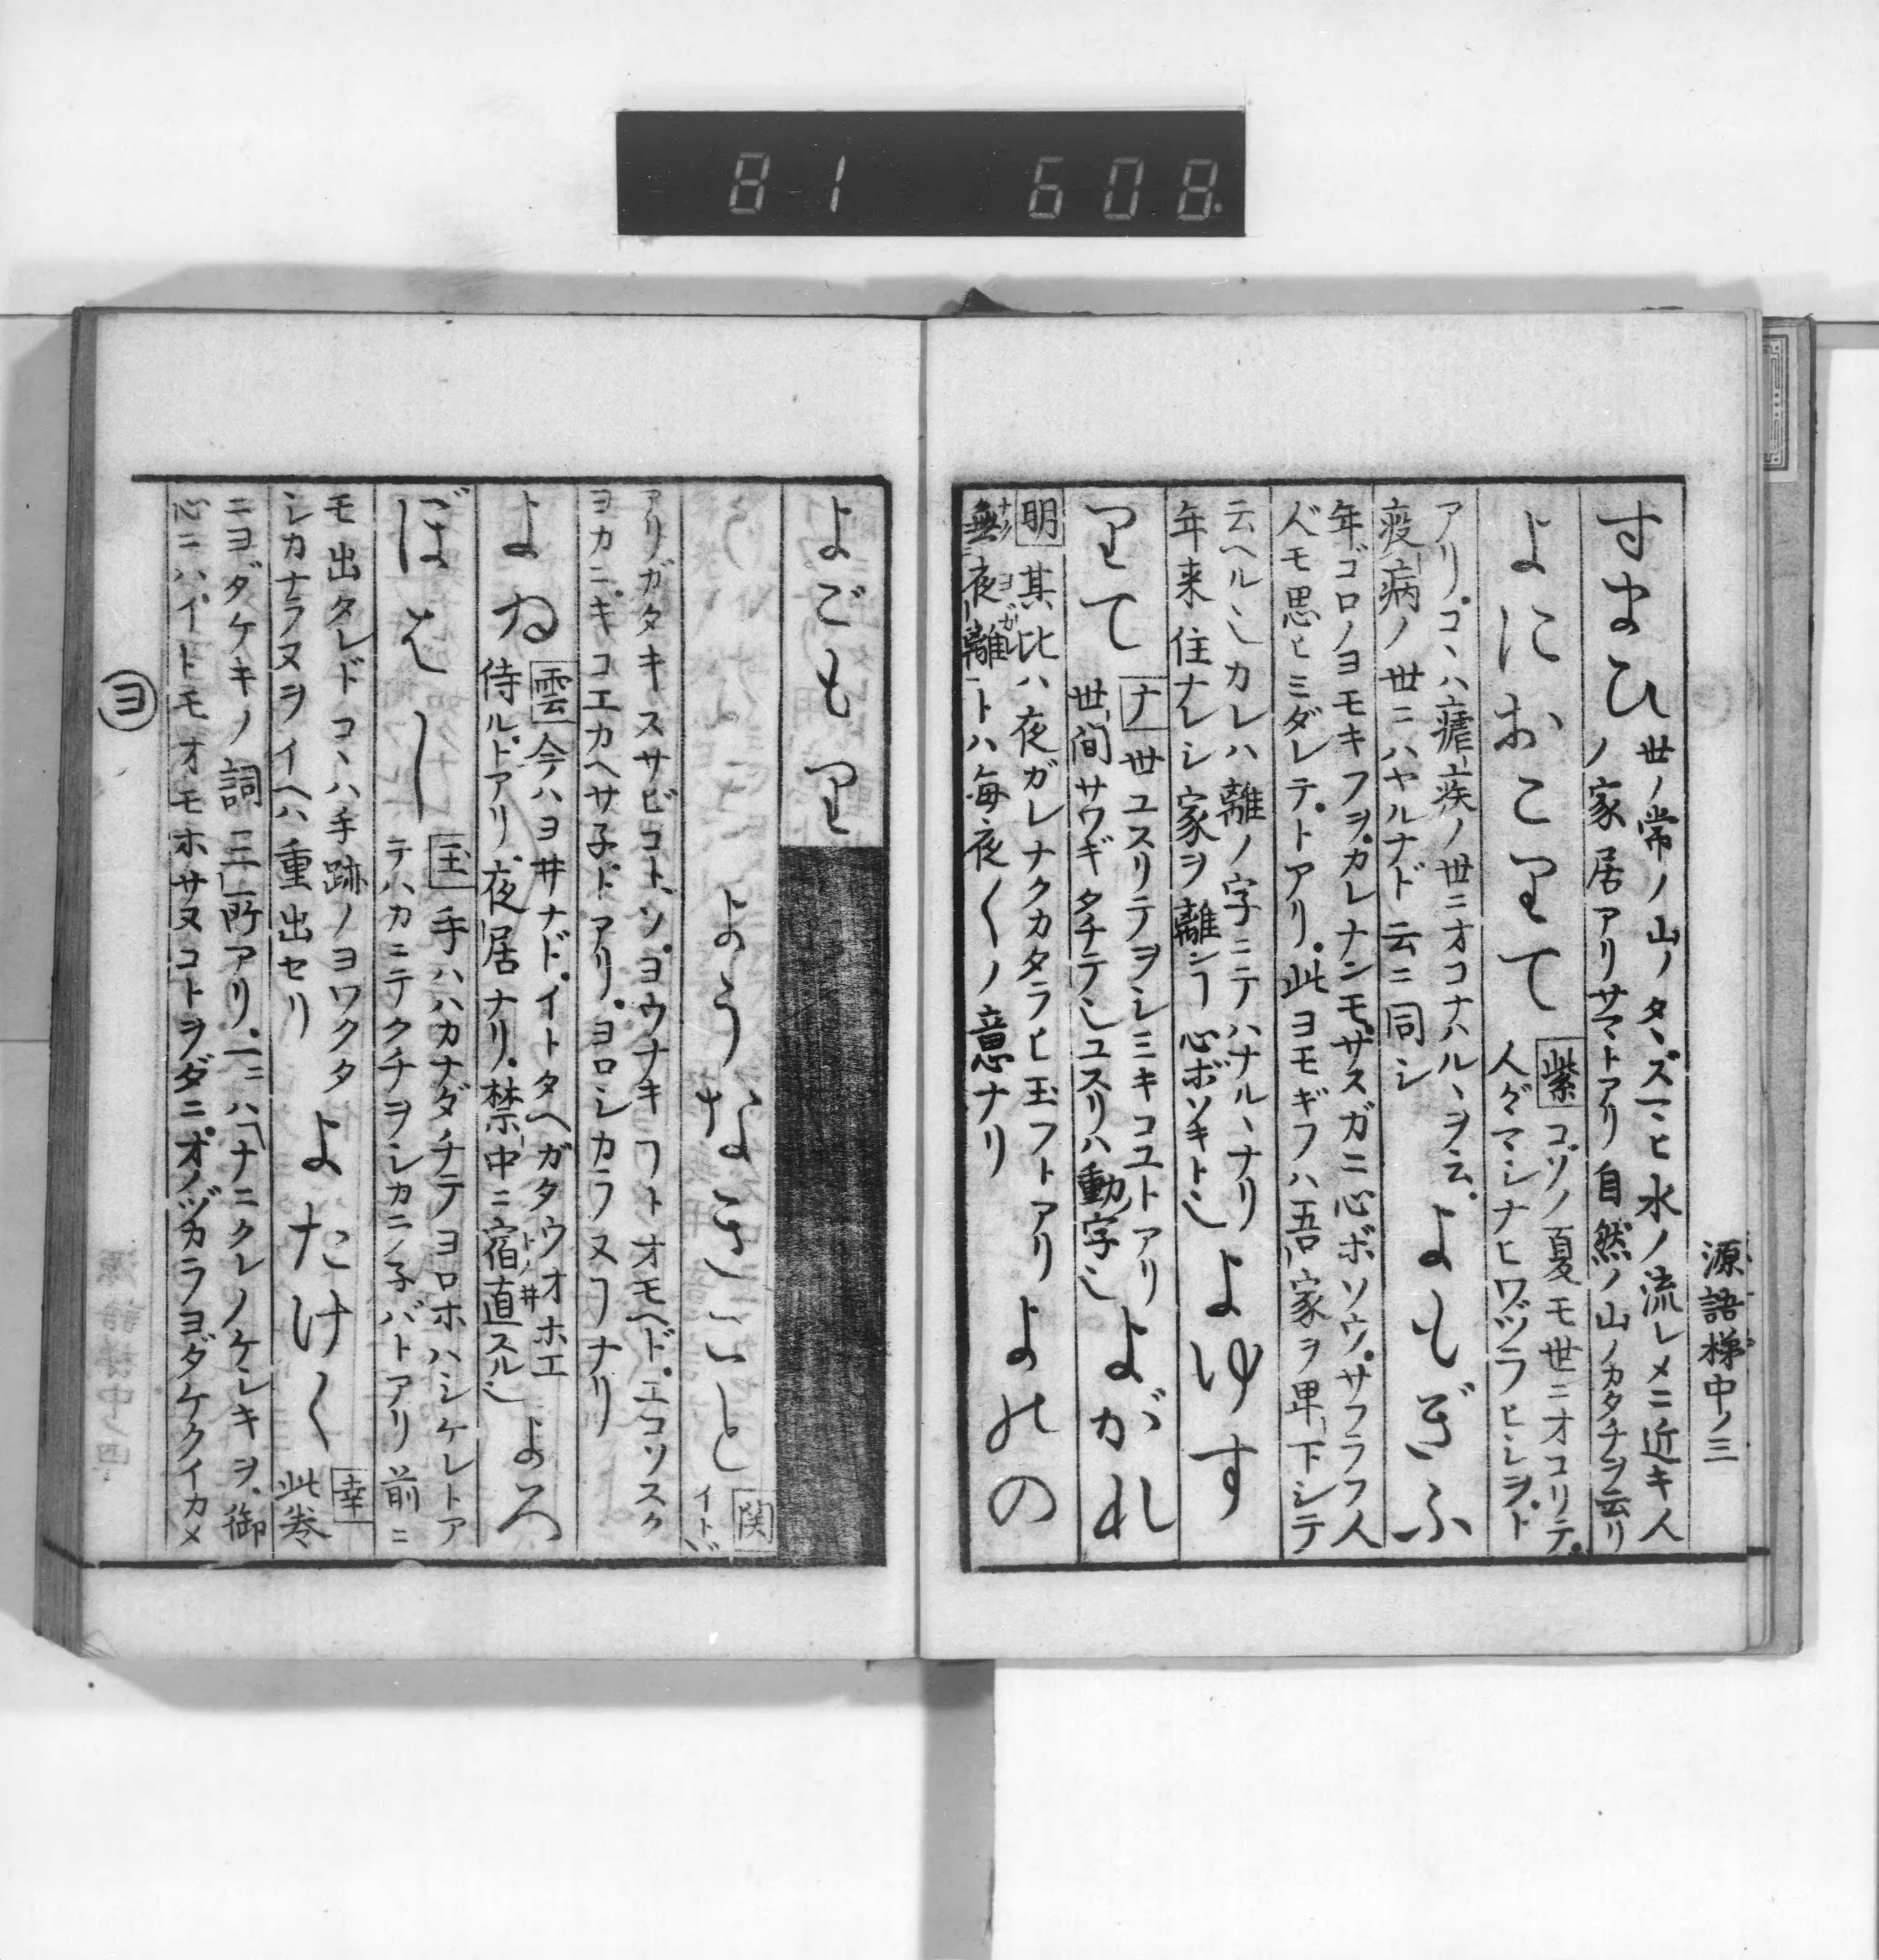 81 608
源語梯中ノ三
すまひ
世ノ常ノ山ノタヽズマヒ水ノ流レメニ近キ人
ノ家居アリサマトアリ自然ノ山ノカタチヲ云リ
よにおこりて
紫 コゾノ夏モ世ニオコリテ。
人〴〵マシナヒワヅラヒシヲ。ト
アリ。コヽハ瘧疾ノ世ニオコナハルヽヲ云。
疫病ノ世ニハヤルナド云ニ同シ
よもぎふ
年ゴロノヨモキフヲ。カレナンモ。サスガニ心ボソウ。サフラフ人
人モ思ヒミダレテ。トアリ。此ヨモギフハ吾家ヲ卑下シテ
云ヘル也カレハ離ノ字ニテハナルヽナリ
年来住ナレシ家ヲ離シヿ心ボソキト也
よゆす
りて
ナ 世ユスリテヲシミキコユトアリ
世間サワギタチテ也ユスリハ動字也
よがれ
明 其比ハ夜ガレナクカタラヒ玉フトアリ
無夜離トハ毎夜〳〵ノ意ナリ
よれの
よごもり
ようなきこと
関 イト
アリガタキスサビコト、ソ。ヨウナキヿトオモヘド。エコソスク
ヨカニ。キコエカヘサ子。トアリ。ヨロシカラヌヿナリ
よゐ
雲 今ハヨヰナド。イトタヘガタウオホエ
侍ル。トアリ。夜居ナリ。禁中ニ宿直スル也
よろ
ぼはし
玉 手ハハカナダチテヨロホハシケレトア
テハカニテクチヲシカニノ子バトアリ前ニ
モ出タレドコヽハ手跡ノヨワクタ
シカナラヌヲイヘハ重出セリ
よだけく
幸 此巻
ニヨダケキノ詞三所アリ。一ニハナニクレノケシキヲ。御
心ニハ。イトモオモホサヌコトヲダニ。オノヅカラヨダケクイカメ
ヨ